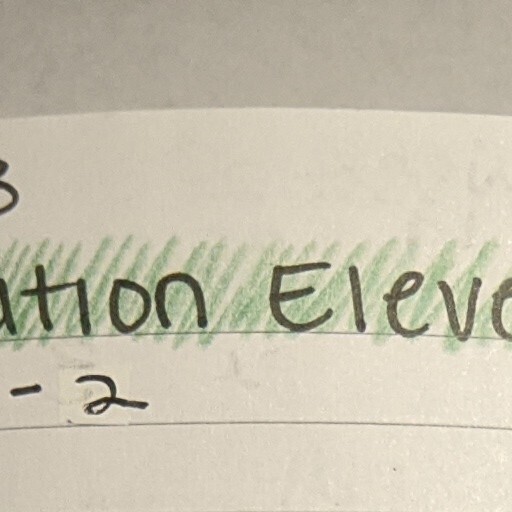 3
ation Eleve
- 2